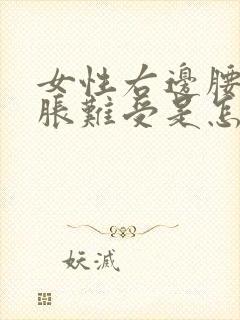 女性右邊腰
脹難受是怎
妖滅